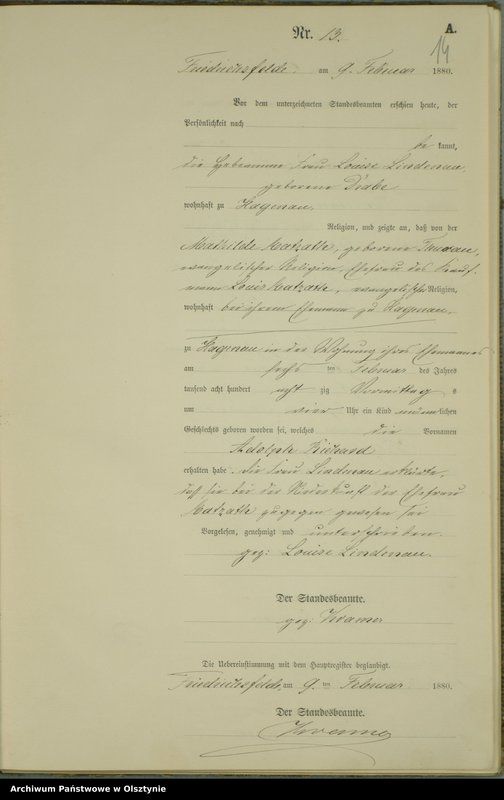 A.
Nr. 13.
14
Friedrichsfelde. am 9. Februar 1880.
Vor dem unterzeichneten Standesbeamten erschien heute, der
Persönlichkeit nach
be kannt,
die Hebamme Frau Louise Lindenau,
geborene
wohnhaft zu Hagenau,
Religion, und zeigte an, daß von der
Mathilde Matzath, geborene
evangelischer Religion, Ehefrau des Kauf-
mann Louis Matzath, evangelischer Religion,
wohnhaft bei ihrem Ehemann zu Hagenau,
zu Hagenau in der Wohnung ihres Ehemannes
am sechs ten Februar des Jahres
tausend acht hundert acht zig Vormittag s
um vier Uhr ein Kind männlichen
Geschlechts geboren worden sei, welches die Vornamen
Adolph Richard
erhalten habe. Die Frau Lindenau erklärte,
daß sie bei der Niederkunft der Ehefrau
Matzath zugegen gewesen sei
Vorgelesen, genehmigt und unterschrieben.
gez: Louise Lindenau.
Der Standesbeamte.
gez: Kramer
Die Uebereinstimmung mit dem Hauptregister beglaubigt.
Friedrichsfelde, am 9. ten Februar 1880.
Der Standesbeamte.
Kramer
Archiwum Państwowe w Olsztynie